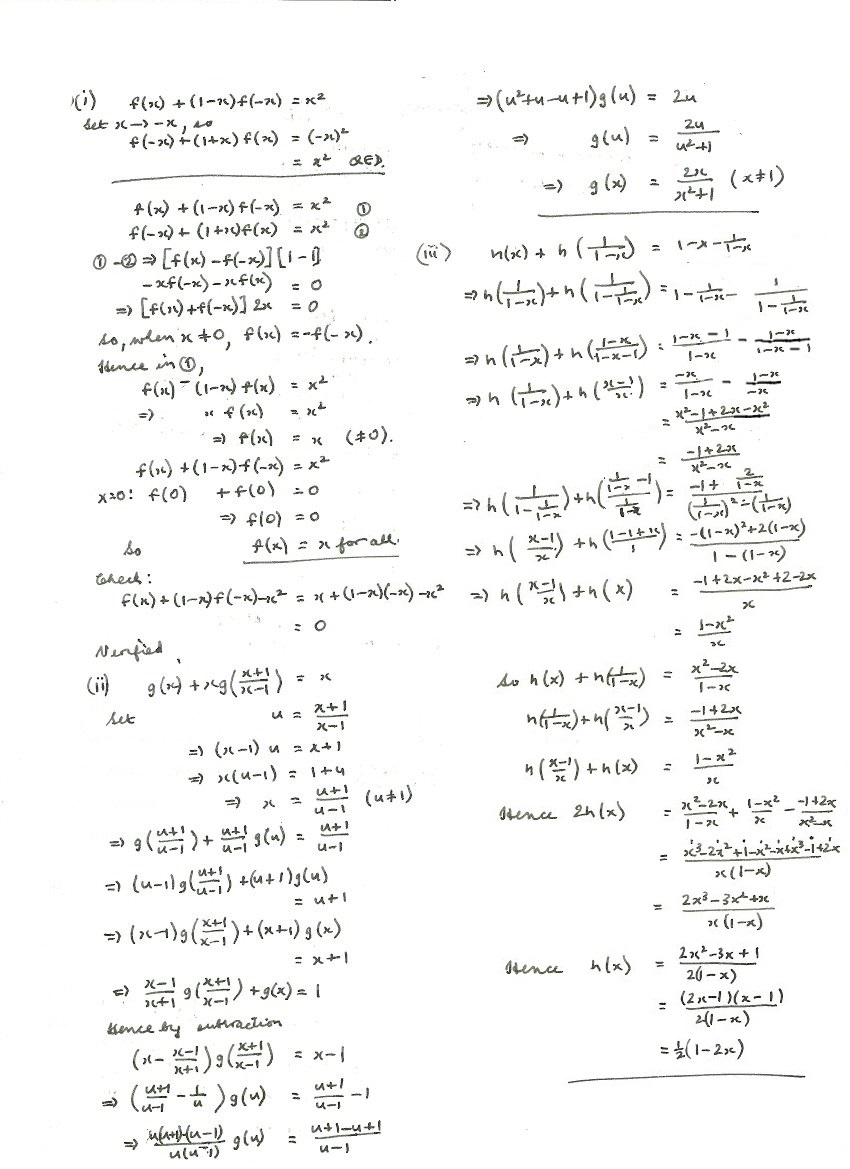 (i) f(x) + (1-x)f(-x) = x²
Set x → -x, so
f(-x) + (1+x) f(x) = (-x)²
= x² QED.
f(x) + (1-x)f(-x) = x² ①
f(-x) + (1+x)f(x) = x² ②
① - ② ⇒ [f(x) - f(-x)][1 - 1]
-xf(-x) - xf(x) = 0
⇒ [f(x) + f(-x)] 2x = 0
So, when x ≠ 0, f(x) = -f(-x).
Hence in ①,
f(x) - (1-x) f(x) = x²
⇒ x f(x) = x²
⇒ f(x) = x (≠0).
f(x) + (1-x) f(-x) = x²
x=0: f(0) + f(0) = 0
⇒ f(0) = 0
So f(x) = x for all.
Check:
f(x) + (1-x)f(-x) - x² = x + (1-x)(-x) - x²
= 0
Verified.
(ii) g(x) + xg((x+1)/(x-1)) = x
Set u = (x+1)/(x-1)
⇒ (x-1) u = x+1
⇒ x(u-1) = 1+u
⇒ x = (u+1)/(u-1) (u≠1)
⇒ g((u+1)/(u-1)) + (u+1)/(u-1) g(u) = (u+1)/(u-1)
⇒ (u-1)g((u+1)/(u-1)) + (u+1)g(u)
= u+1
⇒ (x-1)g((x+1)/(x-1)) + (x+1)g(x)
= x+1
⇒ (x-1)/(x+1) g((x+1)/(x-1)) + g(x) = 1
Hence by subtraction
(x - (x-1)/(x+1)) g((x+1)/(x-1)) = x-1
⇒ ((u+1)/(u-1) - 1/u) g(u) = (u+1)/(u-1) - 1
⇒ (u(u+1)-(u-1))/(u(u-1)) g(u) = (u+1-u+1)/(u-1)
⇒ (u²+u-u+1)g(u) = 2u
⇒ g(u) = 2u/(u²+1)
⇒ g(x) = 2x/(x²+1) (x≠1)
(iii) h(x) + h(1/(1-x)) = 1-x-1/(1-x)
⇒ h(1/(1-x)) + h(1/(1-1/(1-x))) = 1 - 1/(1-x) - 1/(1-1/(1-x))
⇒ h(1/(1-x)) + h((1-x)/(1-x-1)) = (1-x-1)/(1-x) - (1-x)/(1-x-1)
⇒ h(1/(1-x)) + h((x-1)/x) = -x/(1-x) - (1-x)/(-x)
= (x²-1+2x-x²)/(x²-x)
= (-1+2x)/(x²-x)
⇒ h(1/(1-1/(1-x))) + h((1/(1-x)-1)/(1/(1-x))) = (-1+2/(1-x))/((1/(1-x))²-(1/(1-x)))
⇒ h((x-1)/x) + h((1-1+x)/1) = (-(1-x)²+2(1-x))/(1-(1-x))
⇒ h((x-1)/x) + h(x) = (-1+2x-x²+2-2x)/x
= (1-x²)/x
So h(x) + h(1/(1-x)) = (x²-2x)/(1-x)
h(1/(1-x)) + h((x-1)/x) = (-1+2x)/(x²-x)
h((x-1)/x) + h(x) = (1-x²)/x
Hence 2h(x) = (x²-2x)/(1-x) + (1-x²)/x - (-1+2x)/(x²-x)
= (x³-2x²+1-x²-x+x³-1+2x)/(x(1-x))
= (2x³-3x²+x)/(x(1-x))
Hence h(x) = (2x²-3x+1)/(2(1-x))
= ((2x-1)(x-1))/(2(1-x))
= ½(1-2x)